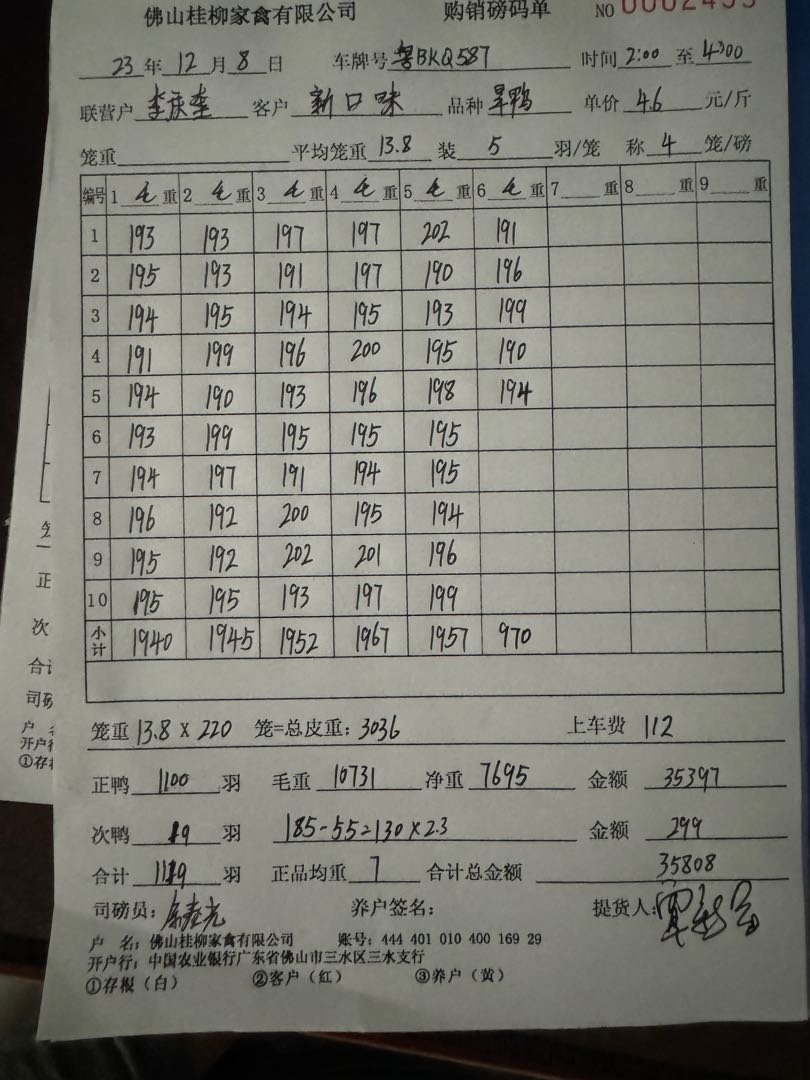 佛山桂柳家禽有限公司 购销磅码单 NO 0002495
23 年 12 月 8 日 车牌号 粤BKQ587 时间 2:00 至 4:00
联营户 李庆奎 客户 新口味 品种 旱鸭 单价 4.6 元/斤
笼重 平均笼重 13.8 装 5 羽/笼 称 4 笼/磅
编号 1 毛 重 2 毛 重 3 毛 重 4 毛 重 5 毛 重 6 毛 重 7 重 8 重 9 重
1 193 193 197 197 202 191
2 195 193 191 197 190 196
3 194 195 194 195 193 199
4 191 199 196 200 195 190
5 194 190 193 196 198 194
6 193 199 195 195 195
7 194 197 191 194 195
8 196 192 200 195 194
9 195 192 202 201 196
10 195 195 193 197 199
小计 1940 1945 1952 1967 1957 970
笼重 13.8 × 220 笼=总皮重: 3036 上车费 112
正鸭 1100 羽 毛重 10731 净重 7695 金额 35397
次鸭 19 羽 185-55=130×2.3 金额 299
合计 1119 羽 正品均重 7 合计总金额 35808
司磅员: 养户签名: 提货人:
户 名: 佛山桂柳家禽有限公司 账号: 444 401 010 400 169 29
开户行: 中国农业银行广东省佛山市三水区三水支行
①存根（白） ②客户（红） ③养户（黄）
正
次
合计
司磅
户 名
开户行
①存根